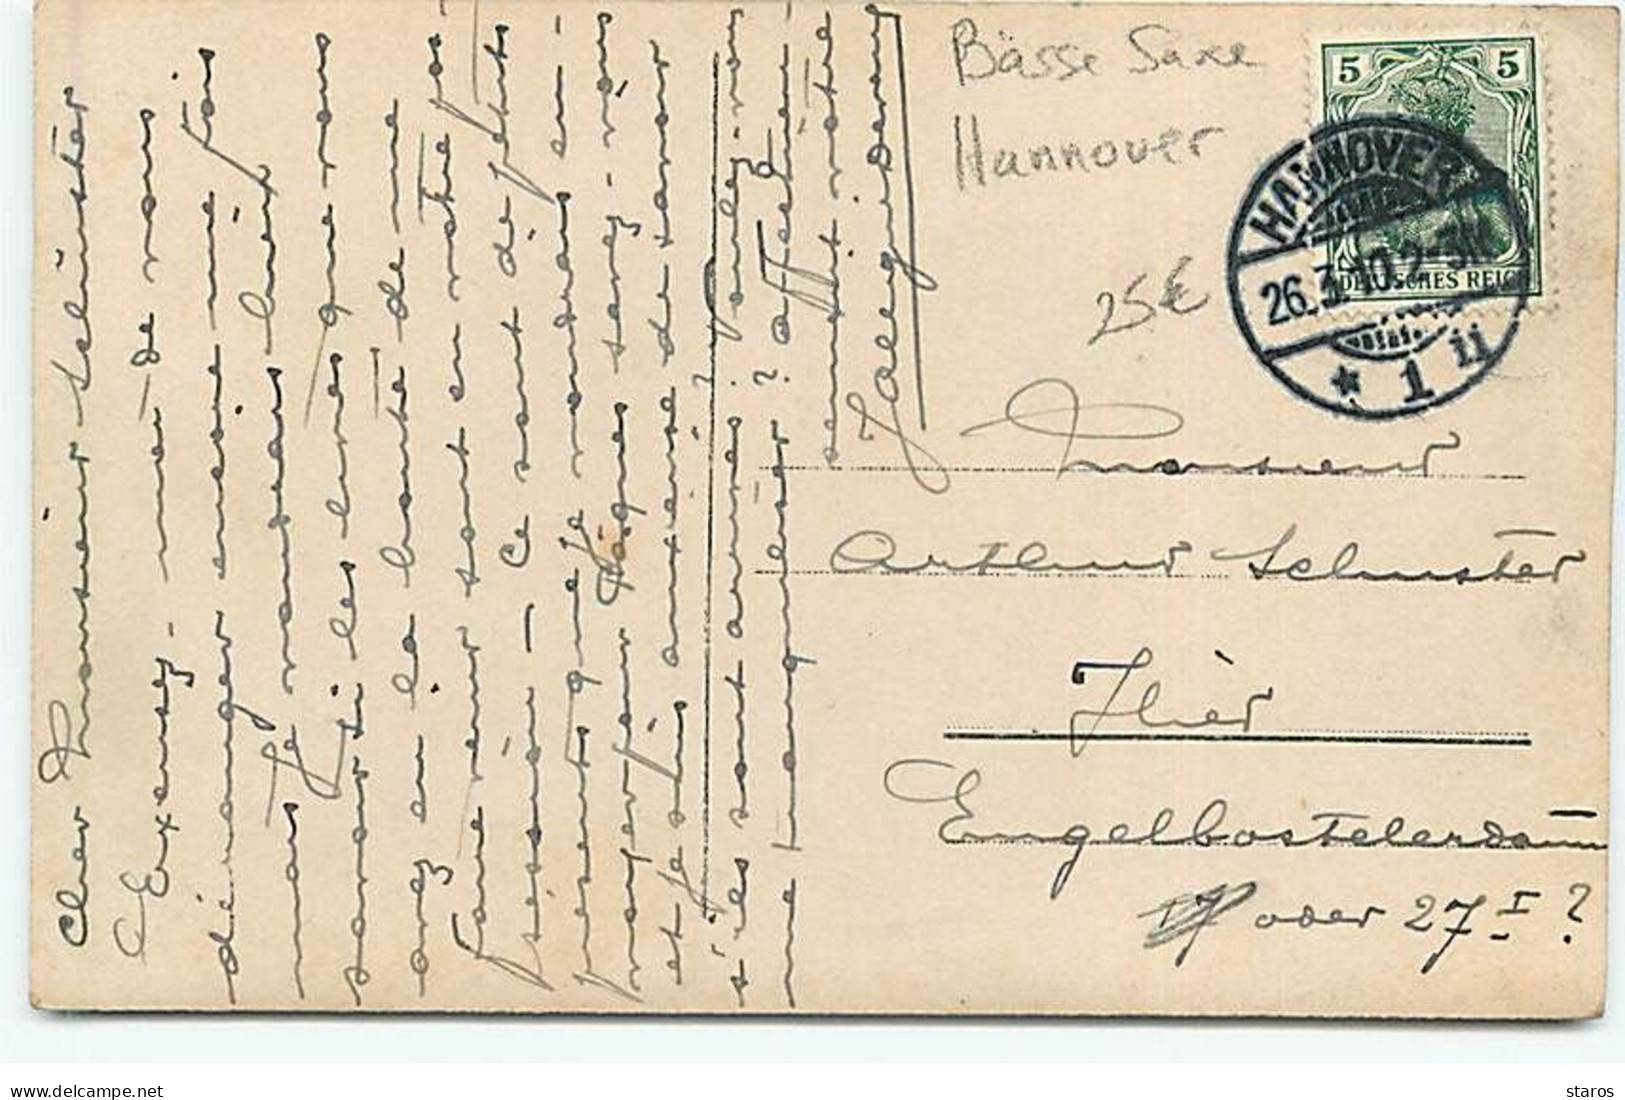 Cher Monsieur Schuster
Excusez-moi de vous
déranger encore une fois
mais je voudrais bien
savoir si les livres que vous
avez eu la bonté de me
faire venir sont en votre pos-
session — Ce sont de petits
présents que je voudrais en-
voyer pour Pâques savez-vous
et je suis anxieuse de savoir
s'ils sont arrivés? Voulez-vous
me tranquiliser? affectueu-
sement votre
Bässe Saxe
Hannover
25€
5 5
DEUTSCHES REICH
HANNOVER
26.3.10. 2-3N
* 1 ii
Monsieur
Arthur Schuster
Hier
Engelbostelerdamm
17 oder 27 I ?
delcampe.net
staros